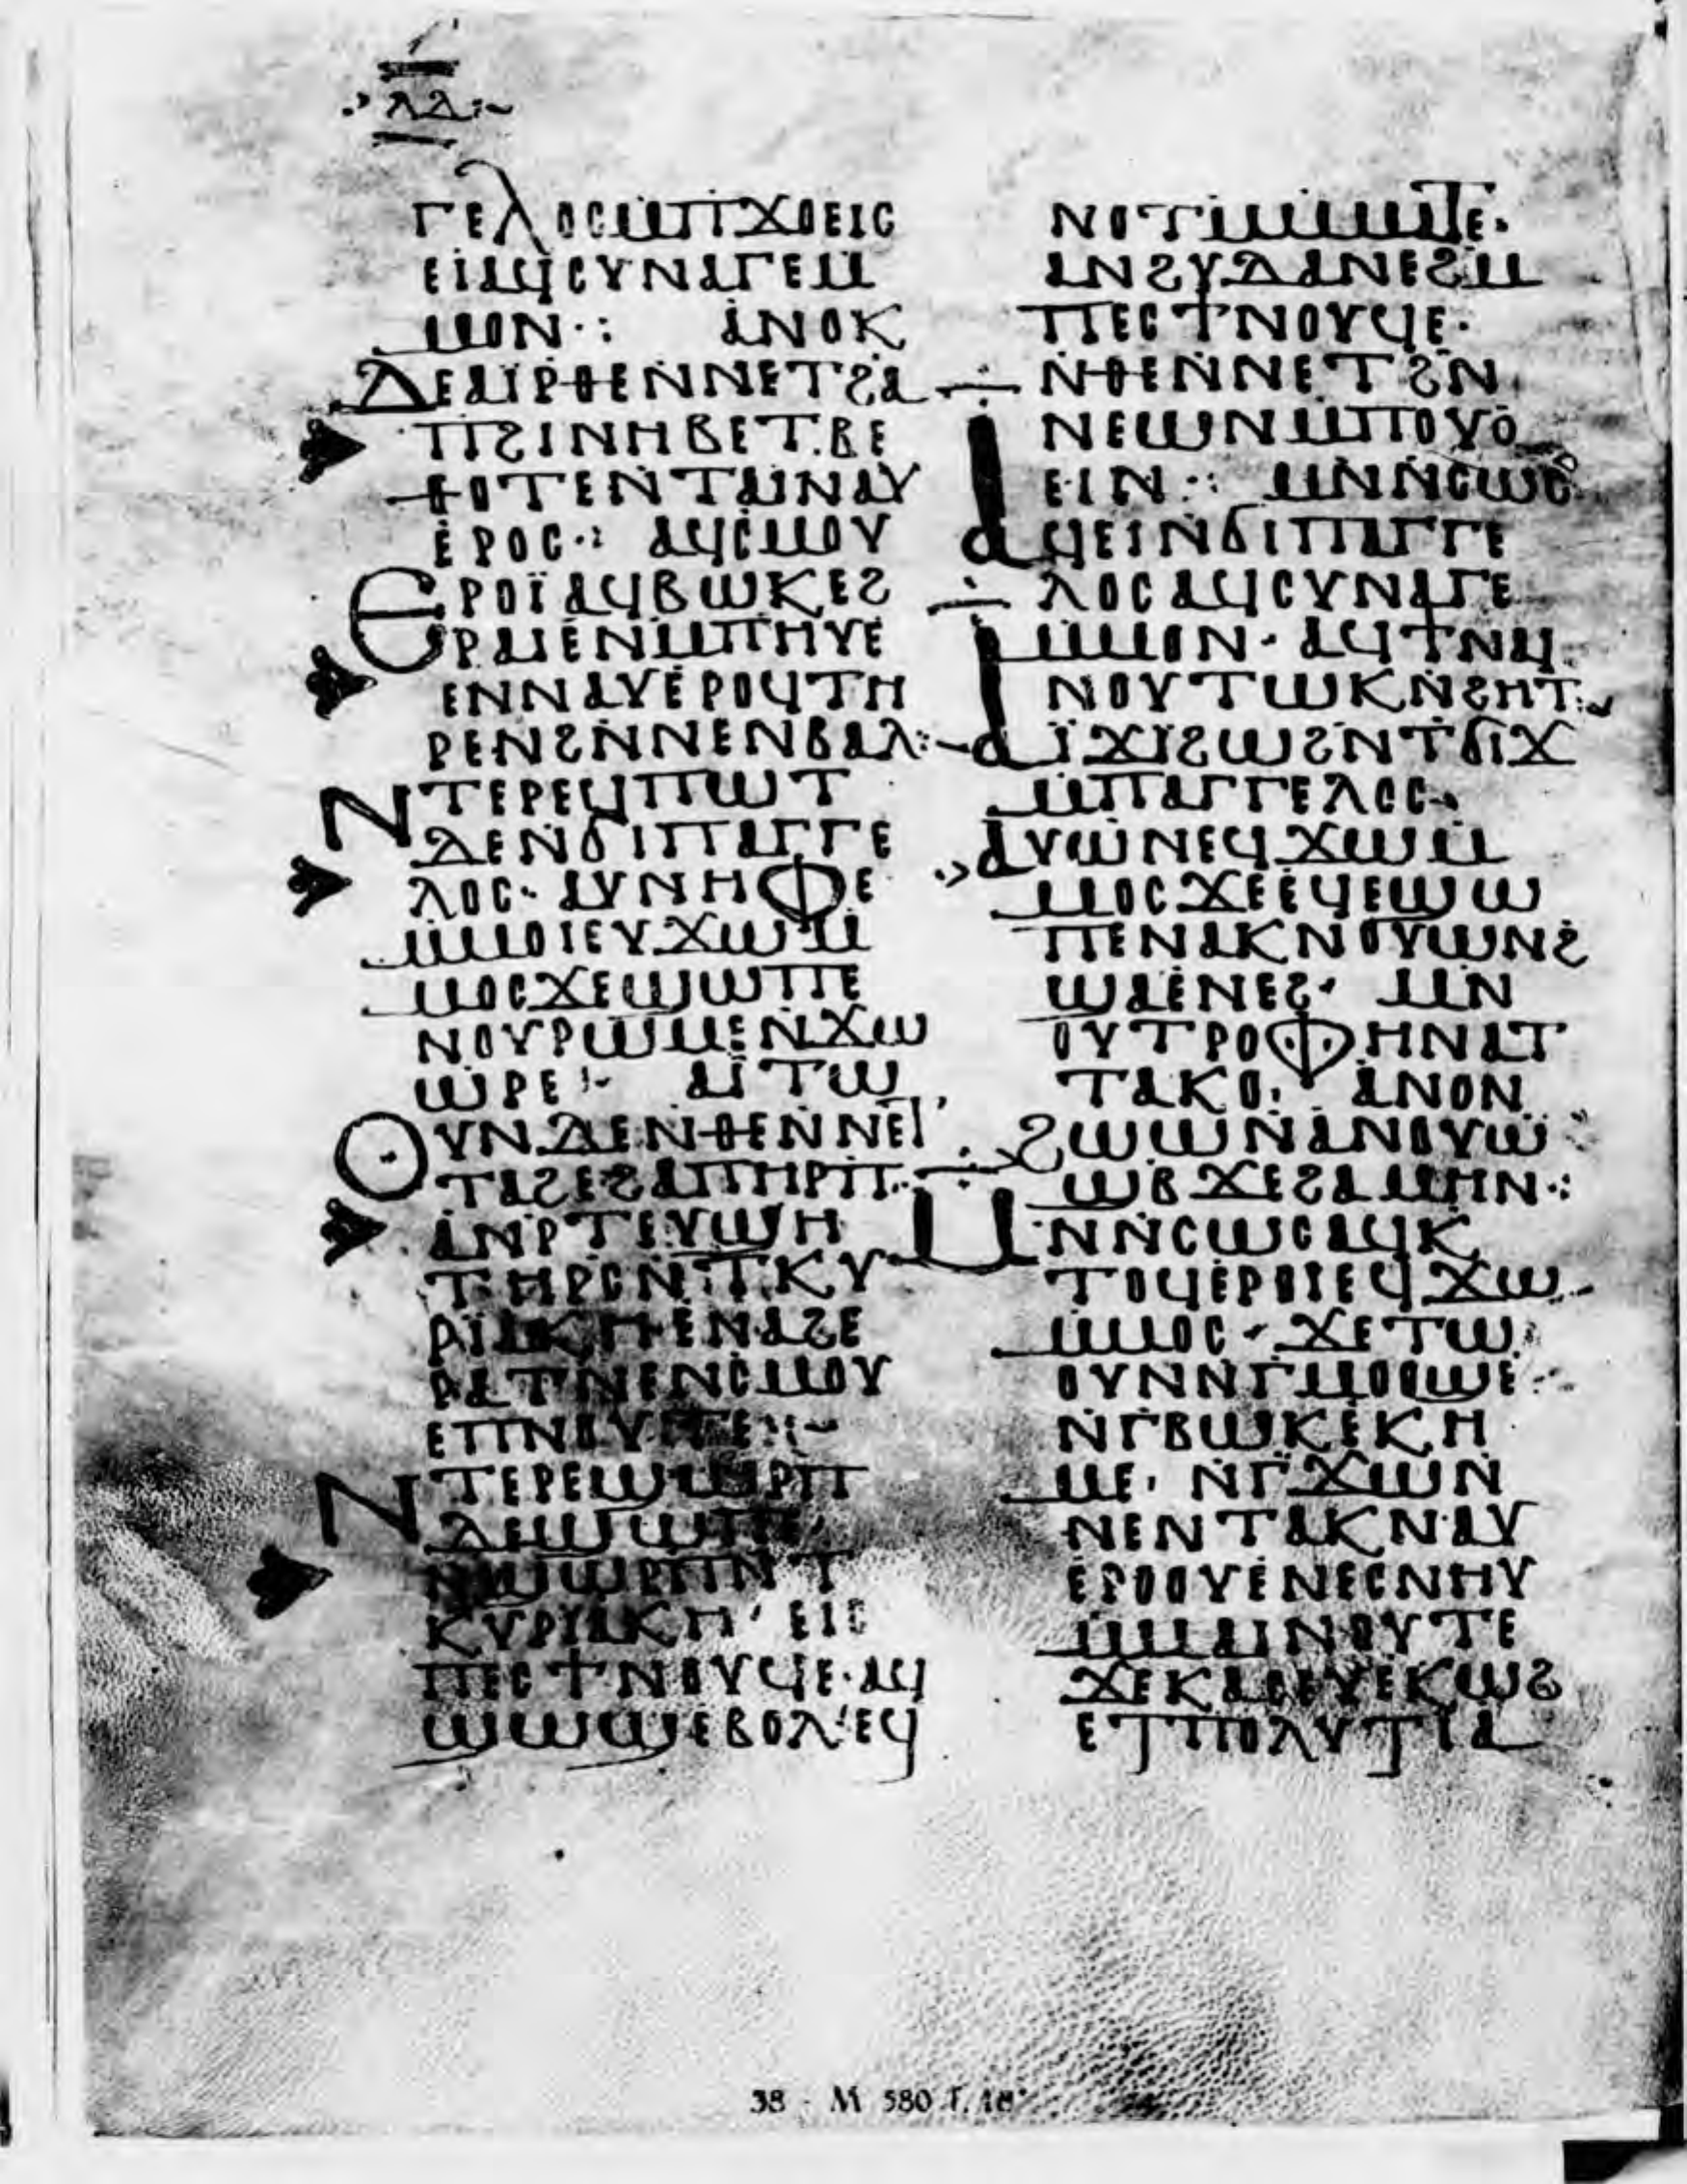 ⲗⲇ
ⲅⲉⲗⲟⲥⲙⲡϫⲟⲉⲓⲥ
ⲉⲓⲁϥⲥⲩⲛⲁⲅⲉⲙ
ⲙⲟⲛ·: ⲁⲛⲟⲕ
ⲇⲉⲁⲓⲣⲑⲉⲛⲛⲉⲧϩⲁ
ⲡϩⲓⲛⲏⲃⲉⲧⲃⲉ
ⲑⲟⲧⲉⲛⲧⲁⲓⲛⲁⲩ
ⲉⲣⲟⲥ·: ⲁϥⲥⲙⲟⲩ
ⲉⲣⲟⲓ̈ⲁϥⲃⲱⲕⲉϩ
ⲣⲁⲓⲉⲛⲙⲡⲏⲩⲉ
ⲉⲛⲛⲁⲩⲉⲣⲟϥⲧⲏ
ⲣⲉⲛϩⲛⲛⲉⲛⲃⲁⲗ:
ⲛⲧⲉⲣⲉϥⲡⲱⲧ
ⲇⲉⲛϭⲓⲡⲁⲅⲅⲉ
ⲗⲟⲥ· ⲁⲩⲛⲏⲫⲉ
ⲙⲙⲟⲓⲉⲩϫⲱⲙ
ⲙⲟⲥϫⲉϣⲱⲡⲉ
ⲛⲟⲩⲣⲱⲙⲉⲛϫⲱ
ⲱⲣⲉ:- ⲁⲓ̈ⲧⲱ
ⲟⲩⲛⲇⲉⲛⲑⲉⲛⲛⲉⲓ
ⲧⲁϩⲉϩⲁⲡⲏⲣⲡ·
ⲁⲛⲣⲧⲉⲩϣⲏ
ⲧⲏⲣⲥⲛⲧⲕⲩ
ⲣⲓ̈ⲁⲕⲏⲉⲛⲁϩⲉ
ⲣⲁⲧⲛⲉⲛⲥⲙⲟⲩ
ⲉⲡⲛⲟⲩⲧⲉ:-
ⲛⲧⲉⲣⲉϣⲱⲣⲡ
ⲇⲉϣⲱⲡⲉ
ⲛϣⲱⲣⲡⲛⲧ
ⲕⲩⲣⲓⲁⲕⲏ ⲉⲓⲥ
ⲡⲉⲥϯⲛⲟⲩϥⲉ·ⲁϥ
ϣⲱϣⲉⲃⲟⲗⲉϥ
ⲛⲟⲧⲙⲙⲙⲧⲉ·
ⲁⲛϩⲩⲇⲁⲛⲉϩⲙ
ⲡⲉⲥϯⲛⲟⲩϥⲉ·
ⲛⲑⲉⲛⲛⲉⲧϩⲛ
ⲛⲉⲱⲛⲙⲡⲟⲩⲟ
ⲉⲓⲛ·: ⲙⲛⲛⲥⲱⲥ
ⲁϥⲉⲓⲛϭⲓⲡⲁⲅⲅⲉ
ⲗⲟⲥⲁϥⲥⲩⲛⲁⲅⲉ
ⲙⲙⲟⲛ· ⲁϥϯⲛⲁϥ
ⲛⲟⲩⲧⲱⲕⲛϩⲏⲧ:
ⲁⲓ̈ϫⲓϩⲱϩⲛⲧϭⲓϫ
ⲙⲡⲁⲅⲅⲉⲗⲟⲥ·
ⲁⲩⲱⲛⲉϥϫⲱⲙ
ⲙⲟⲥϫⲉⲉϥⲉϣⲱ
ⲡⲉⲛⲁⲕⲛⲟⲩⲱⲛϩ
ϣⲁⲉⲛⲉϩ· ⲙⲛ
ⲟⲩⲧⲣⲟⲫⲏⲛⲁⲧ
ⲧⲁⲕⲟ· ⲁⲛⲟⲛ
ϩⲱⲱⲛⲁⲛⲟⲩⲱ
ϣⲃϫⲉϩⲁⲙⲏⲛ·:
ⲙⲛⲛⲥⲱⲥⲁϥⲕ
ⲧⲟϥⲉⲣⲟⲓⲉϥϫⲱ
ⲙⲙⲟⲥ· ϫⲉⲧⲱ
ⲟⲩⲛⲛⲅⲙⲟⲟϣⲉ·
ⲛⲅⲃⲱⲕⲉⲕⲏ
ⲙⲉ· ⲛⲅϫⲱⲛ
ⲛⲉⲛⲧⲁⲕⲛⲁⲩ
ⲉⲣⲟⲟⲩⲉⲛⲉⲥⲛⲏⲩ
ⲙⲙⲁⲓⲛⲟⲩⲧⲉ
ϫⲉⲕⲁⲥⲉⲩⲉⲕⲱϩ
ⲉⲧⲡⲟⲗⲩⲧⲓⲁ
38 - M 580 f. 18